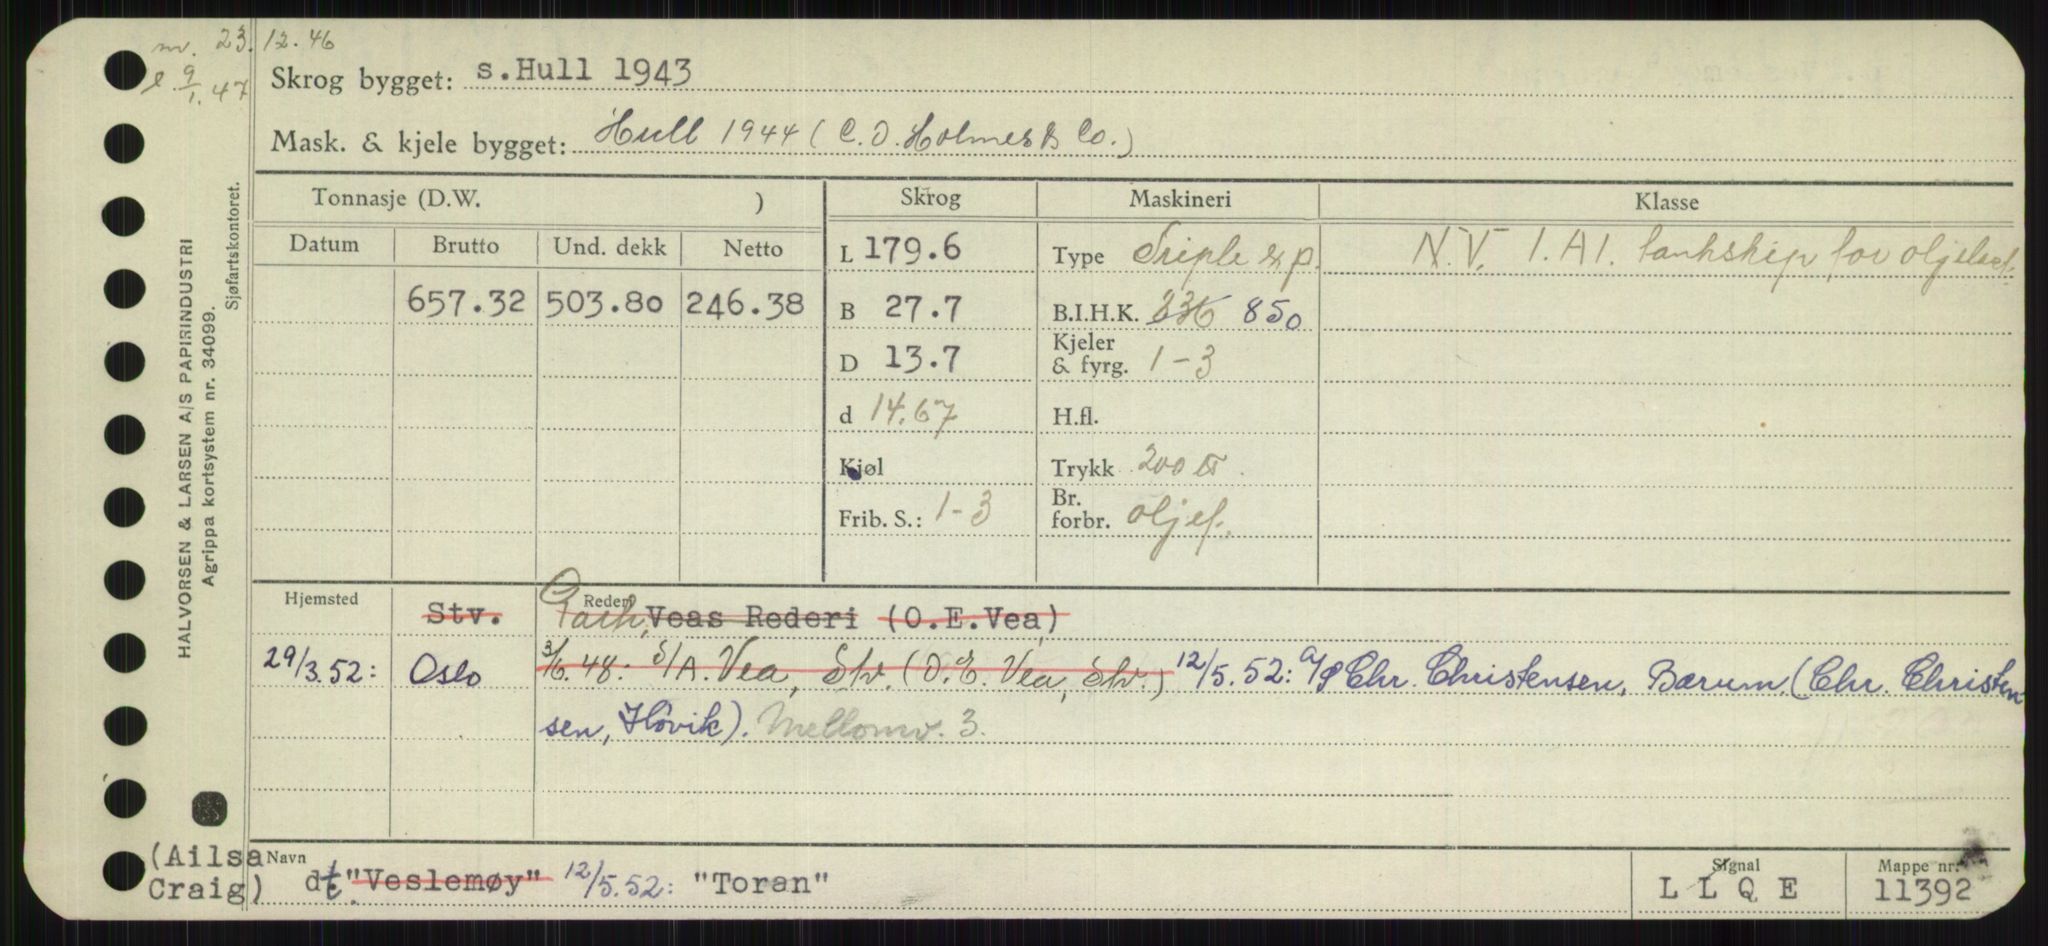 nv. 23.12.46
l 9/1.47
Skrog bygget: s.Hull 1943
Mask. & kjele bygget: Hull 1944 (C.D. Holmes & Co.)
HALVORSEN & LARSEN A/S PAPIRINDUSTRI
Agrippa kortsystem nr. 34099.
Sjøfartskontoret.
Tonnasje (D.W. ) Skrog Maskineri Klasse
Datum Brutto Und. dekk Netto
L 179.6 Type Triple exp. N.V. 1.A1. tankskip for oljelast.
657.32 503.80 246.38 B 27.7 B.I.H.K. 236 850
D 13.7 Kjeler & fyrg. 1-3
d 14.67 H.fl.
Kjøl Trykk 200 lb.
Frib. S.: 1-3 Br. forbr. oljef.
Hjemsted Stv. Rederi Veas Rederi (O.E.Vea)
29/3.52: Oslo 3/6.48. S/A. Vea, Stv. (O.E. Vea, Stv.) 12/5.52: A/S Chr. Christensen, Bærum. (Chr. Christen-
sen, Høvik). Mellomv. 3.
(Ailsa Craig) Navn dt "Veslemøy" 12/5.52: "Toran" Signal L L Q E Mappe nr. 11392